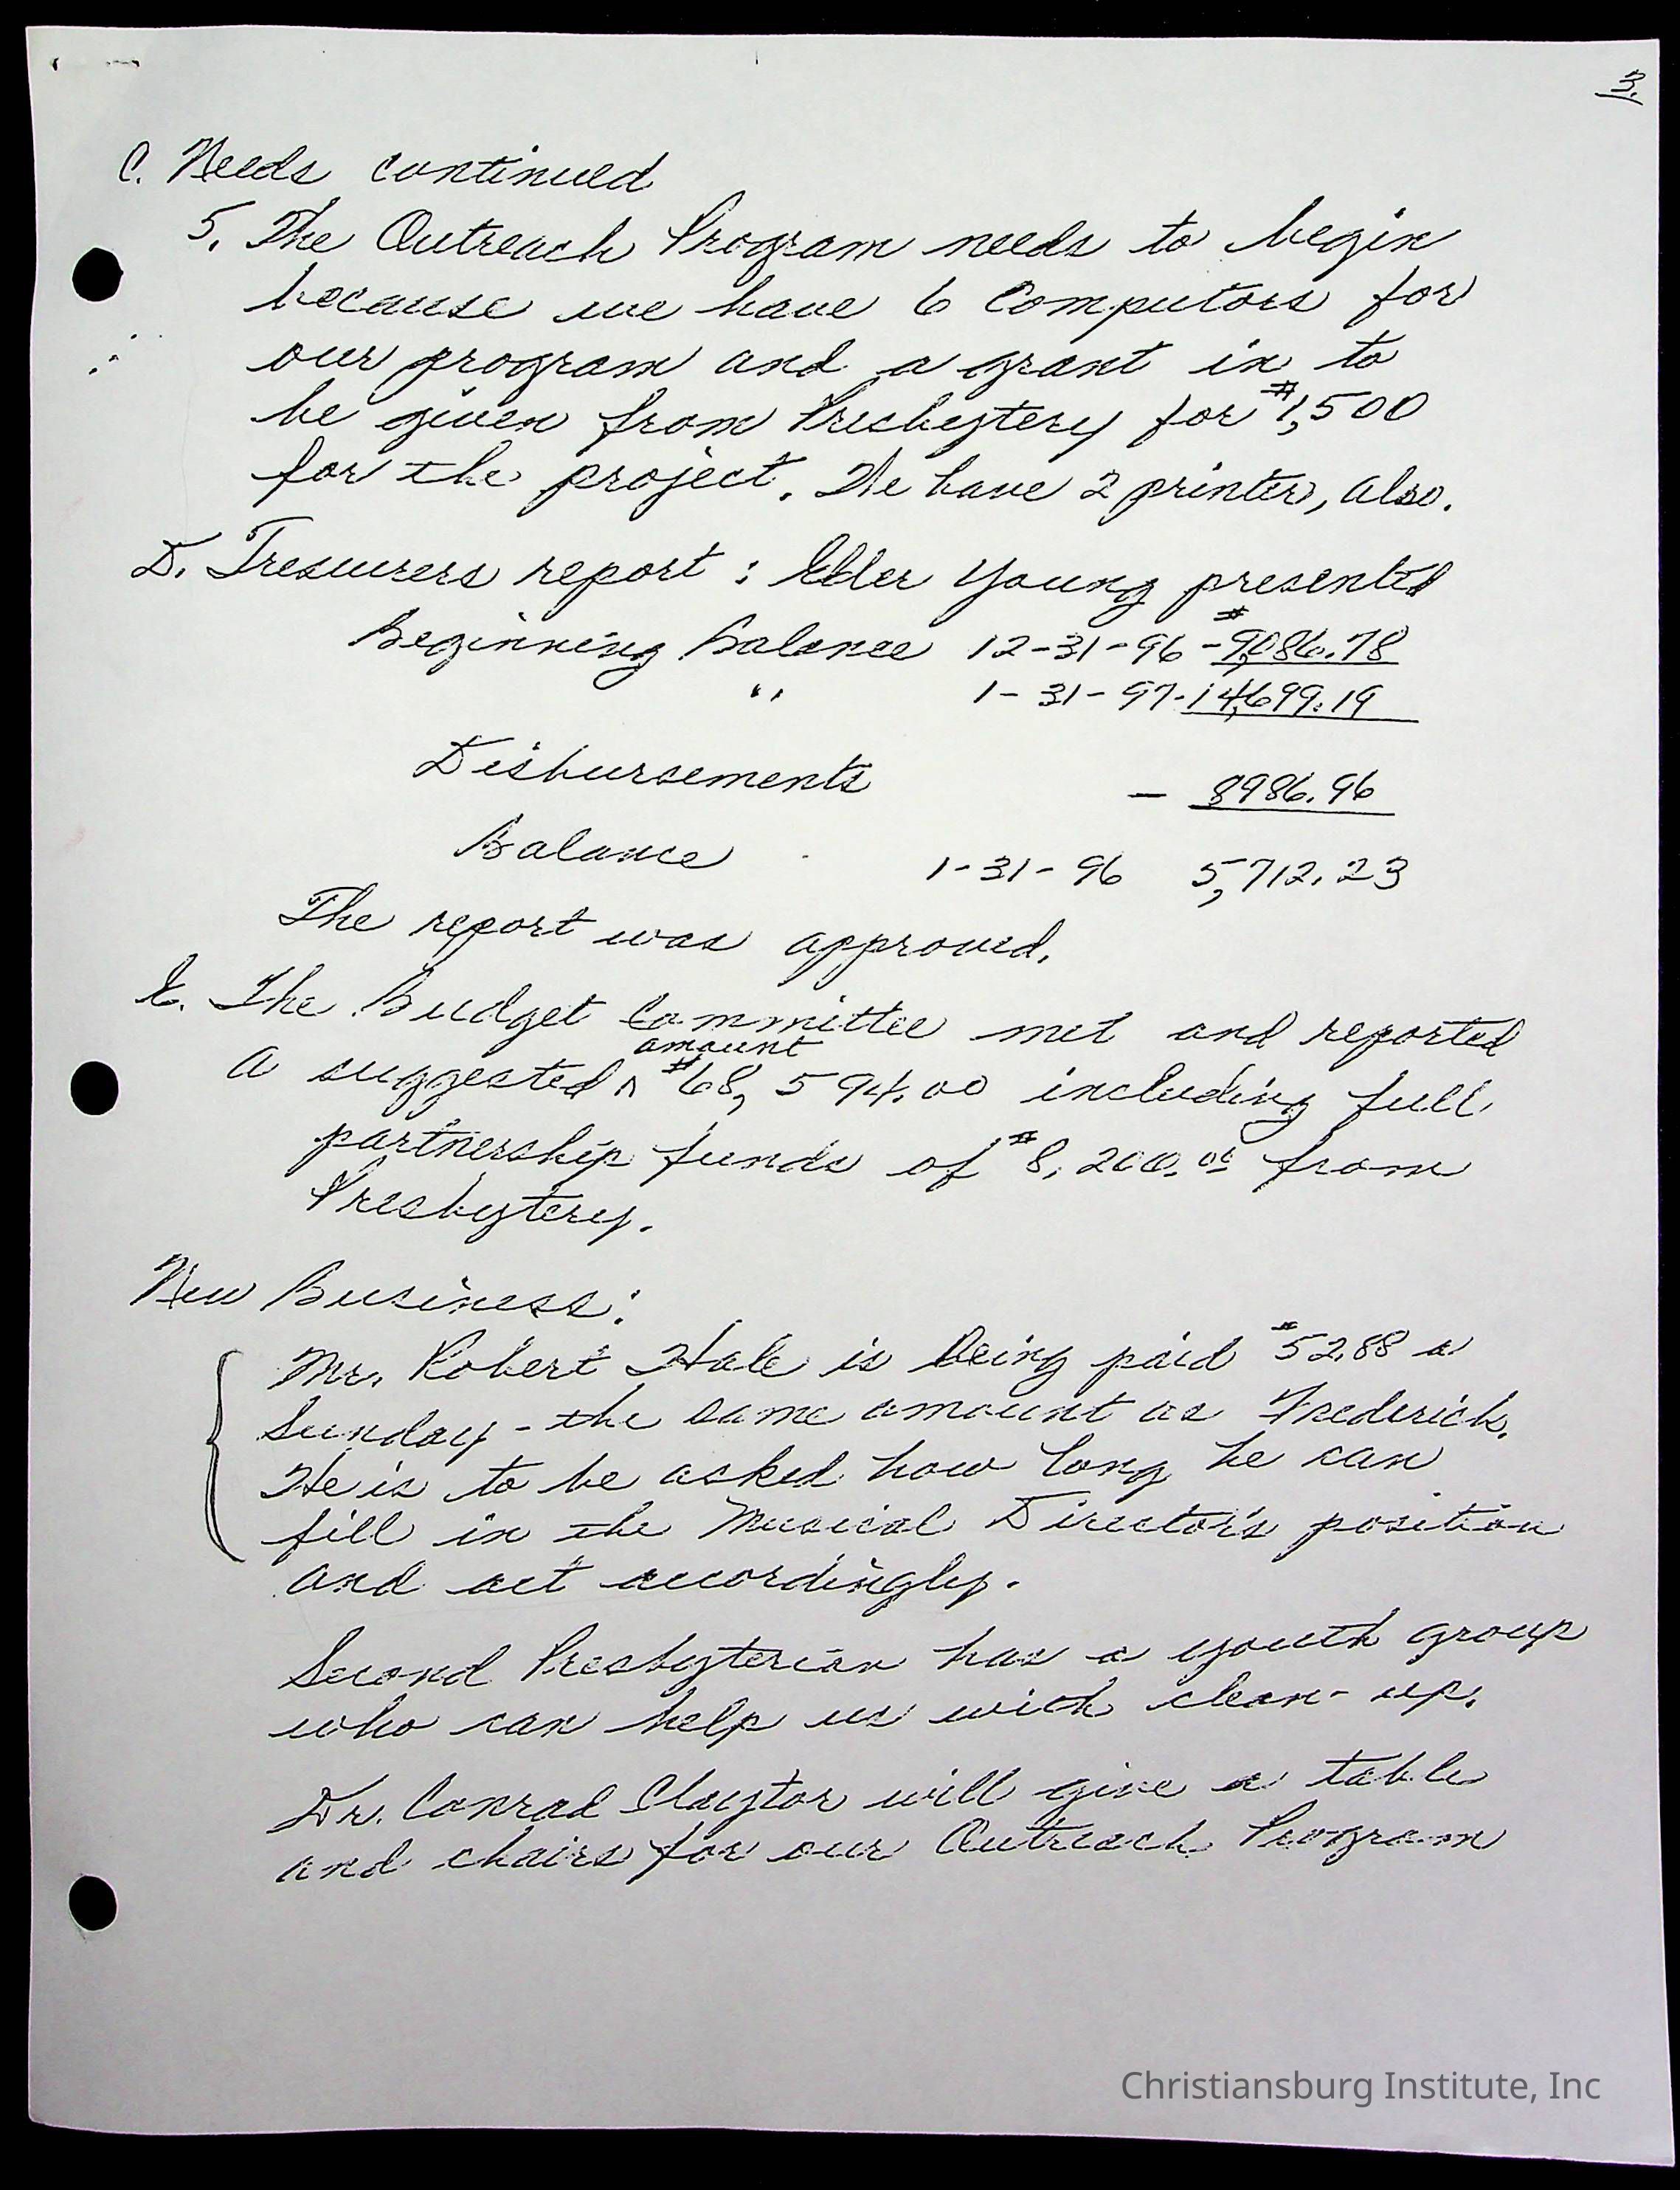 3.
C. Needs continued
5. The Outreach Program needs to begin
because we have 6 Computors for
our program and a grant in to
be given from Presbytery for $1,500
for the project. We have 2 printers, also.
D. Tresurers report : Elder Young presented
Beginning Balance 12-31-96 - $9,086.78
" 1-31-97 - 14,699.19
Disbursements - 8986.96
Balance 1-31-96 5,712.23
The report was approved.
E. The Budget Committee met and reported
amount
a suggested ^ $68,594.00 including full
partnership funds of $8,200.00 from
Presbytery.
New Business:
Mr. Robert Hale is being paid $52.88 a
Sunday - the same amount as Frederick.
He is to be asked how long he can
fill in the Musical Director's position
and act accordingly.
Second Presbyterian has a youth group
who can help us with clean-up.
Dr. Conrad Claytor will give a table
and chairs for our Outreach Program
Christiansburg Institute, Inc